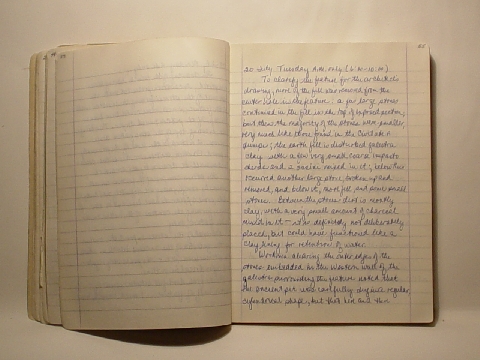 20 July Tuesday A.M. only (6:00-10:00)
To clarify the feature for the architect's
drawing, more of the fill was removed from the
of the feature: a few large stones
continued in the fill in the top of
but then the majority of the stones were smaller,
very much like those found in the
dumps; the earth fill is disturbed
clay with a few very small, coarse
sherds and a mixed in it; below this
another large stone, broken up and
removed, and below it, more fill and some small
stones. Between the stones dirt is mostly
clay, with a very small amount of charcoal
mixed in it - definitely not deliberately
placed, but could have functioned like a
clay lining for retention of water.
Workmen cleaning the edges of the
stones embedded in the western wall of the
surrounding the feature noted that
the ancient pit was carefully dug in a regular,
cylindrical shape, but that here and there